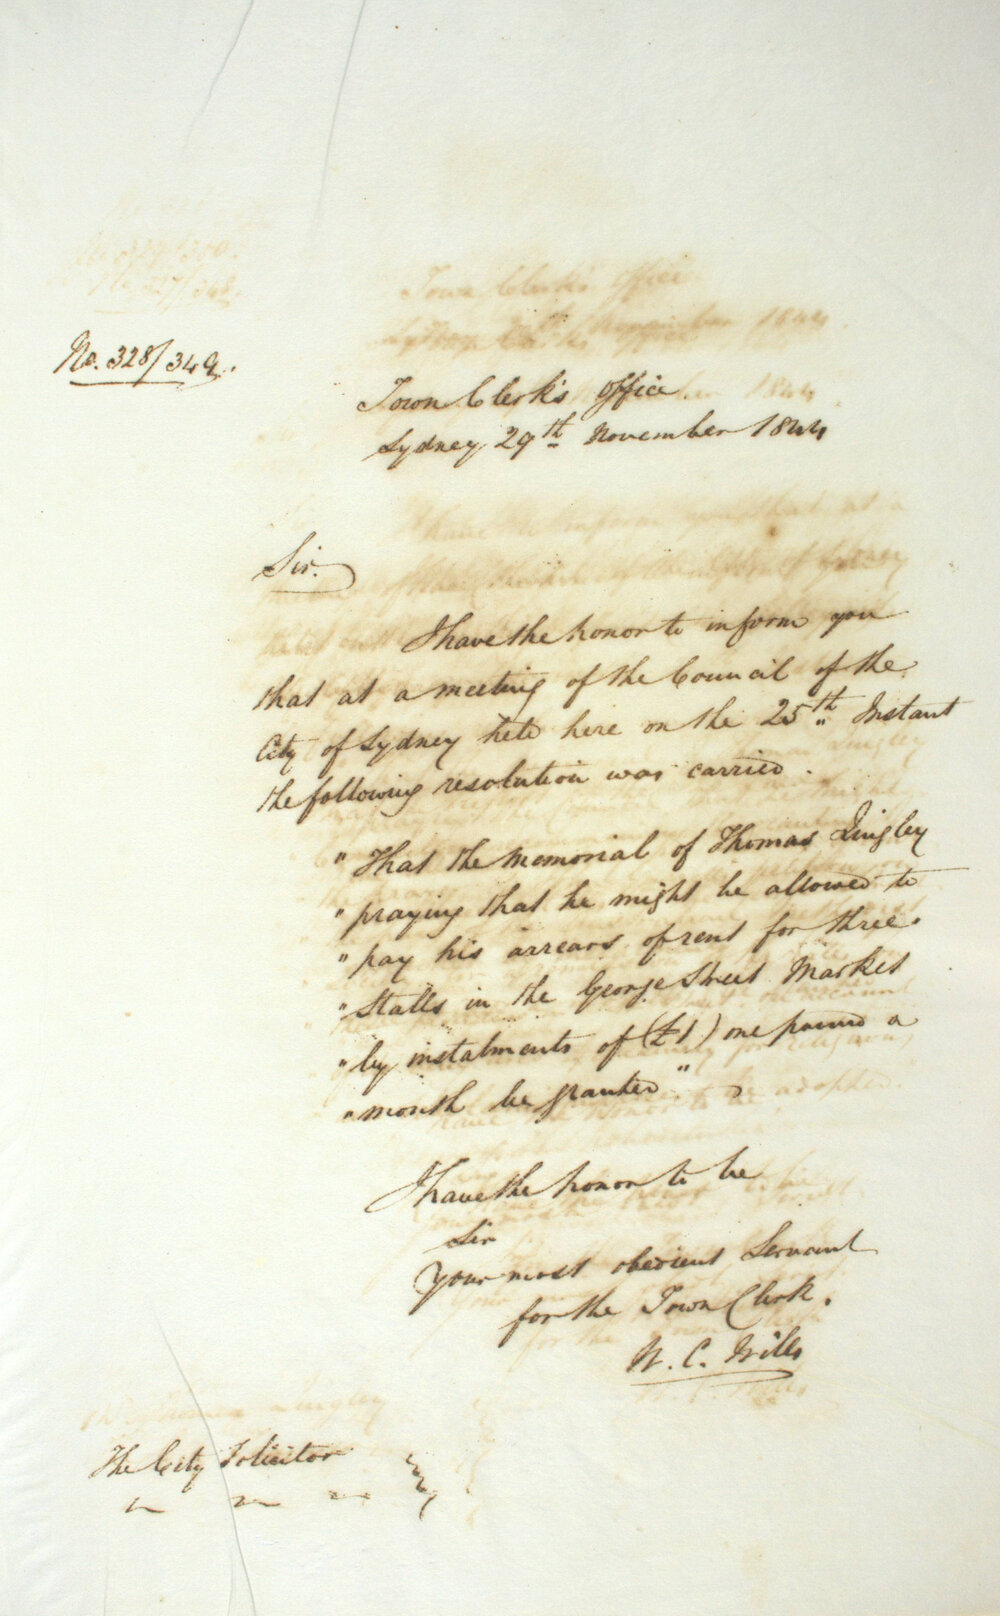 No. 328/349.
Town Clerk's Office
Sydney 29th November 1844
Sir.
I have the honor to inform you
that at a meeting of the Council of the
City of Sydney held here on the 25th Instant
the following resolution was carried.
" That the Memorial of Thomas Lingley
" praying that he might be allowed to
" pay his arrears of rent for three
" Stalls in the George Street Market
" by instalments of (£1) one pound a
" month be granted "
I have the honor to be
Sir
Your most obedient Servant
for the Town Clerk.
W. C. Wills
The City Solicitor